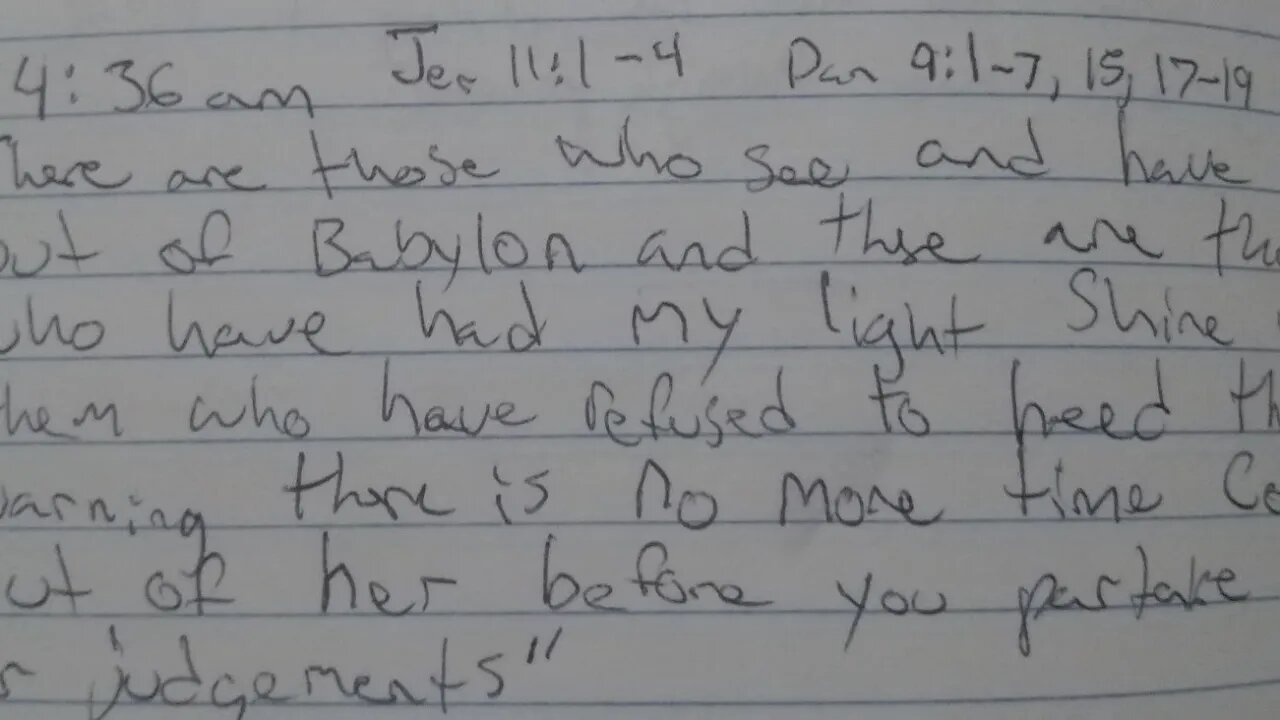 4:36 am Jer 11:1-4 Dan 9:1-7, 15, 17-19
here are those who see and have
out of Babylon and these are th
who have had my light Shine
hem who have refused to heed th
arning there is no more time Co
ut of her before you partake
r judgements"